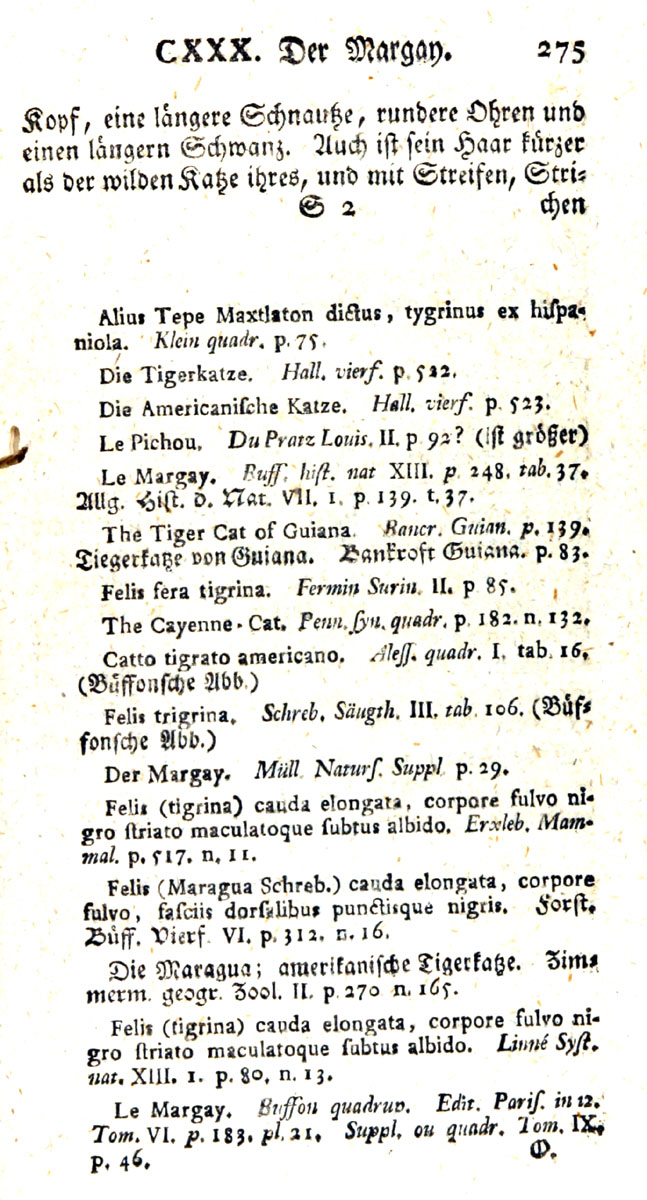 CXXX. Der Margay. 275
Kopf, eine längere Schnautze, rundere Ohren und
einen längern Schwanz. Auch ist sein Haar kürzer
als der wilden Katze ihres, und mit Streifen, Stri-
S 2 chen
Alius Tepe Maxtlaton dictus, tygrinus ex hiſpa-
niola. Klein quadr. p. 75.
Die Tigerkatze. Hall. vierf. p. 522.
Die Americaniſche Katze. Hall. vierf. p. 523.
Le Pichou. Du Pratz Louis. II. p 92? (ist größer)
Le Margay. Buff. hiſt. nat XIII. p. 248. tab. 37.
Allg. Hist. d. Nat. VII. 1. p. 139. t. 37.
The Tiger Cat of Guiana. Bancr. Guian. p. 139.
Tiegerkatze von Guiana. Bankroft Guiana. p. 83.
Felis fera tigrina. Fermin Surin. II. p 85.
The Cayenne-Cat. Penn. ſyn. quadr. p. 182. n. 132.
Catto tigrato americano. Aleſſ. quadr. I. tab. 16.
(Büffonsche Abb.)
Felis trigrina. Schreb. Säugth. III. tab. 106. (Büf-
fonsche Abb.)
Der Margay. Müll Naturſ. Suppl p. 29.
Felis (tigrina) cauda elongata, corpore fulvo ni-
gro ſtriato maculatoque ſubtus albido. Erxleb. Mam-
mal. p. 517. n. 11.
Felis (Maragua Schreb.) cauda elongata, corpore
fulvo, faſciis dorſalibus punctisque nigris. Forst.
Büff. Vierf VI. p. 312. n. 16.
Die Maragua; amerikanische Tigerkatze. Zim-
merm. geogr. Zool. II. p. 270 n. 165.
Felis (tigrina) cauda elongata, corpore fulvo ni-
gro ſtriato maculatoque ſubtus albido. Linné Syſt.
nat. XIII. 1. p. 80. n. 13.
Le Margay. Buffon quadrup. Edit. Pariſ. in 12.
Tom. VI. p. 183. pl. 21. Suppl. ou quadr. Tom. IX.
p. 46. O.